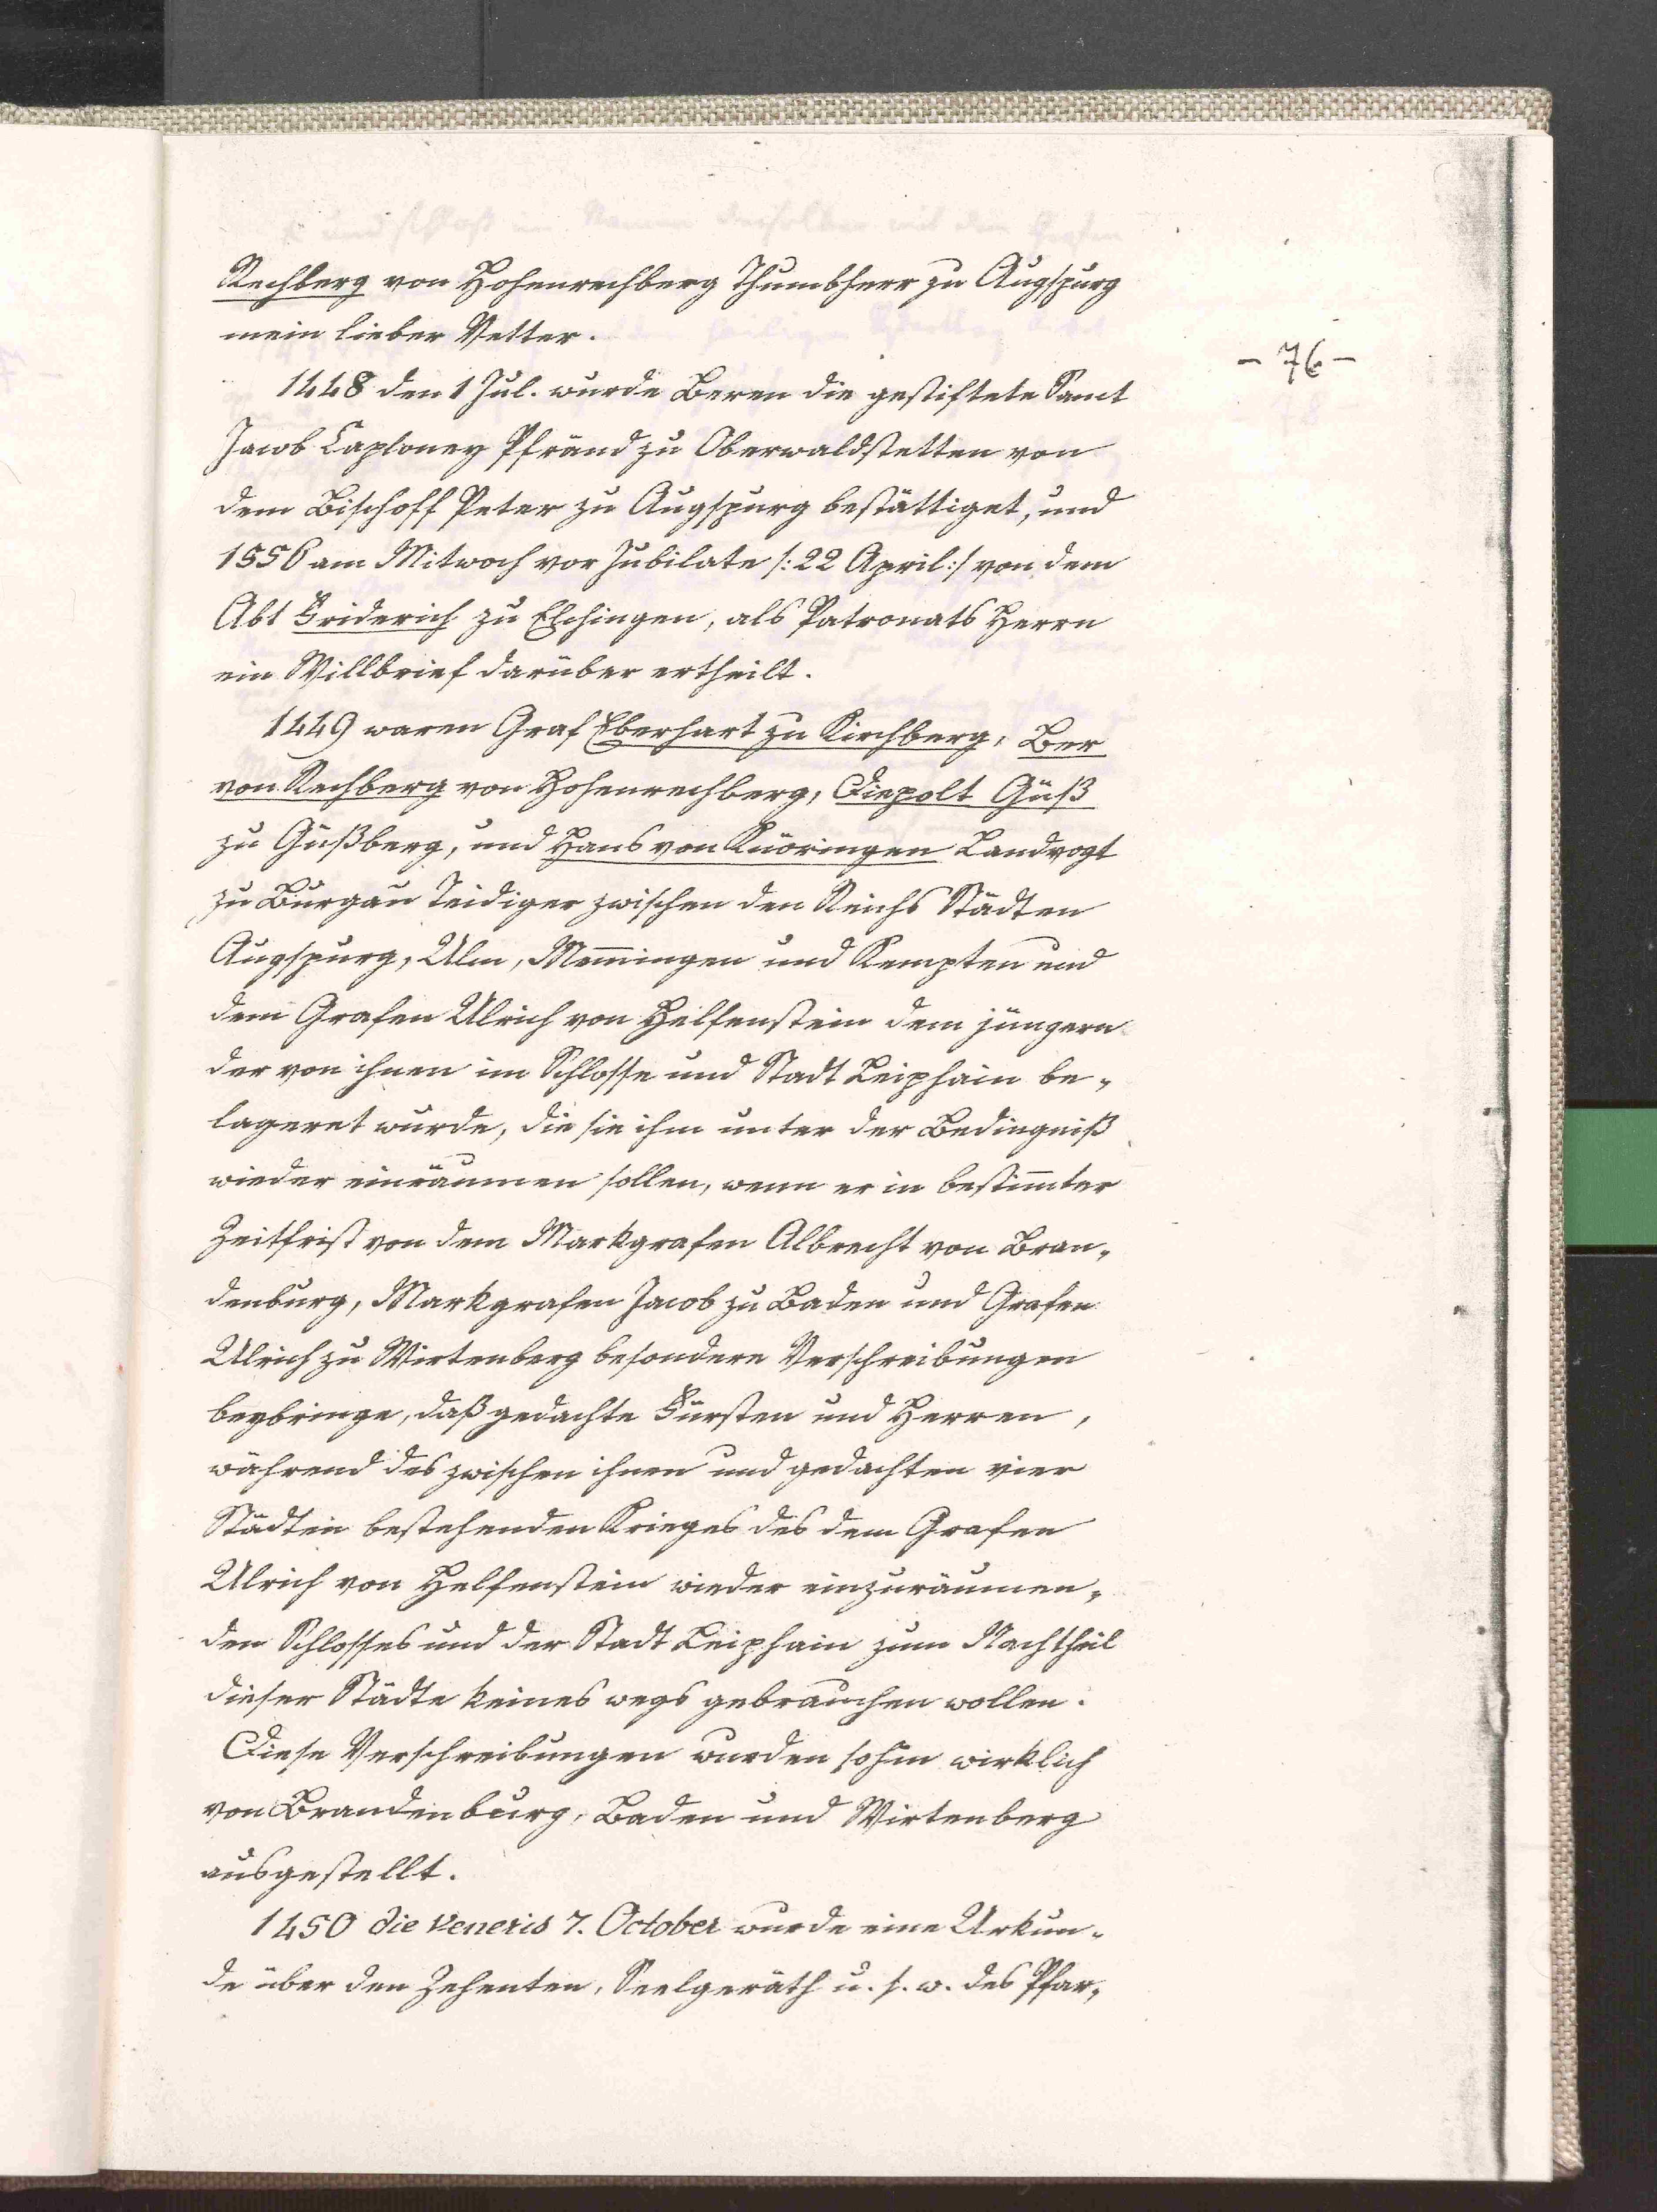 Rechberg von Hohenrechberg Thumbherr zu Augspurg
mein lieber Vetter.
- 76 -
1448 den 1 Jul. wurde Beren die gestiftete Sanct
Jacob Caploney Pfründ zu Oberwaldstetten von
dem Bischoff Peter zu Augspurg bestättiget, und
1556 am Mitwoch vor Jubilate /: 22 April :/ von dem
Abt Friderich zu Elchingen, als Patronats Herrn
ein Willbrief darüber ertheilt.
1449 waren Graf Eberhart zu Kirchberg, Ber
von Rechberg von Hohenrechberg, Diepolt Güß
zu Güßberg, und Hans von Knöringen Landvogt
zu Burgau Teidiger zwischen den Reichs Städten
Augspurg, Ulm, Mem̄ingen und Kempten und
dem Grafen Ulrich von Helfenstein dem jüngern
der von ihnen im Schlosse und Stadt Leiphain be-
lageret wurde, die sie ihm unter der Bedingniß
wieder einräumen sollen, wenn er in bestim̄ter
Zeitfrist von dem Markgrafen Albrecht von Bran-
denburg, Markgrafen Jacob zu Baden und Grafen
Ulrich zu Wirtenberg besondere Verschreibungen
beybringe, daß gedachte Fürsten und Herren,
während des zwischen ihnen und gedachten vier
Städten bestehenden Krieges des dem Grafen
Ulrich von Helfenstein wieder einzuräumen-
den Schlosses und der Stadt Leiphain zum Nachtheil
dieser Städte keines wegs gebrauchen wollen.
Diese Verschreibungen wurden sohin wirklich
von Brandenburg, Baden und Wirtenberg
ausgestellt.
1450 die Veneris 7. October wurde eine Urkun-
de über den Zehenten, Seelgeräth u. s. w. des Pfar-